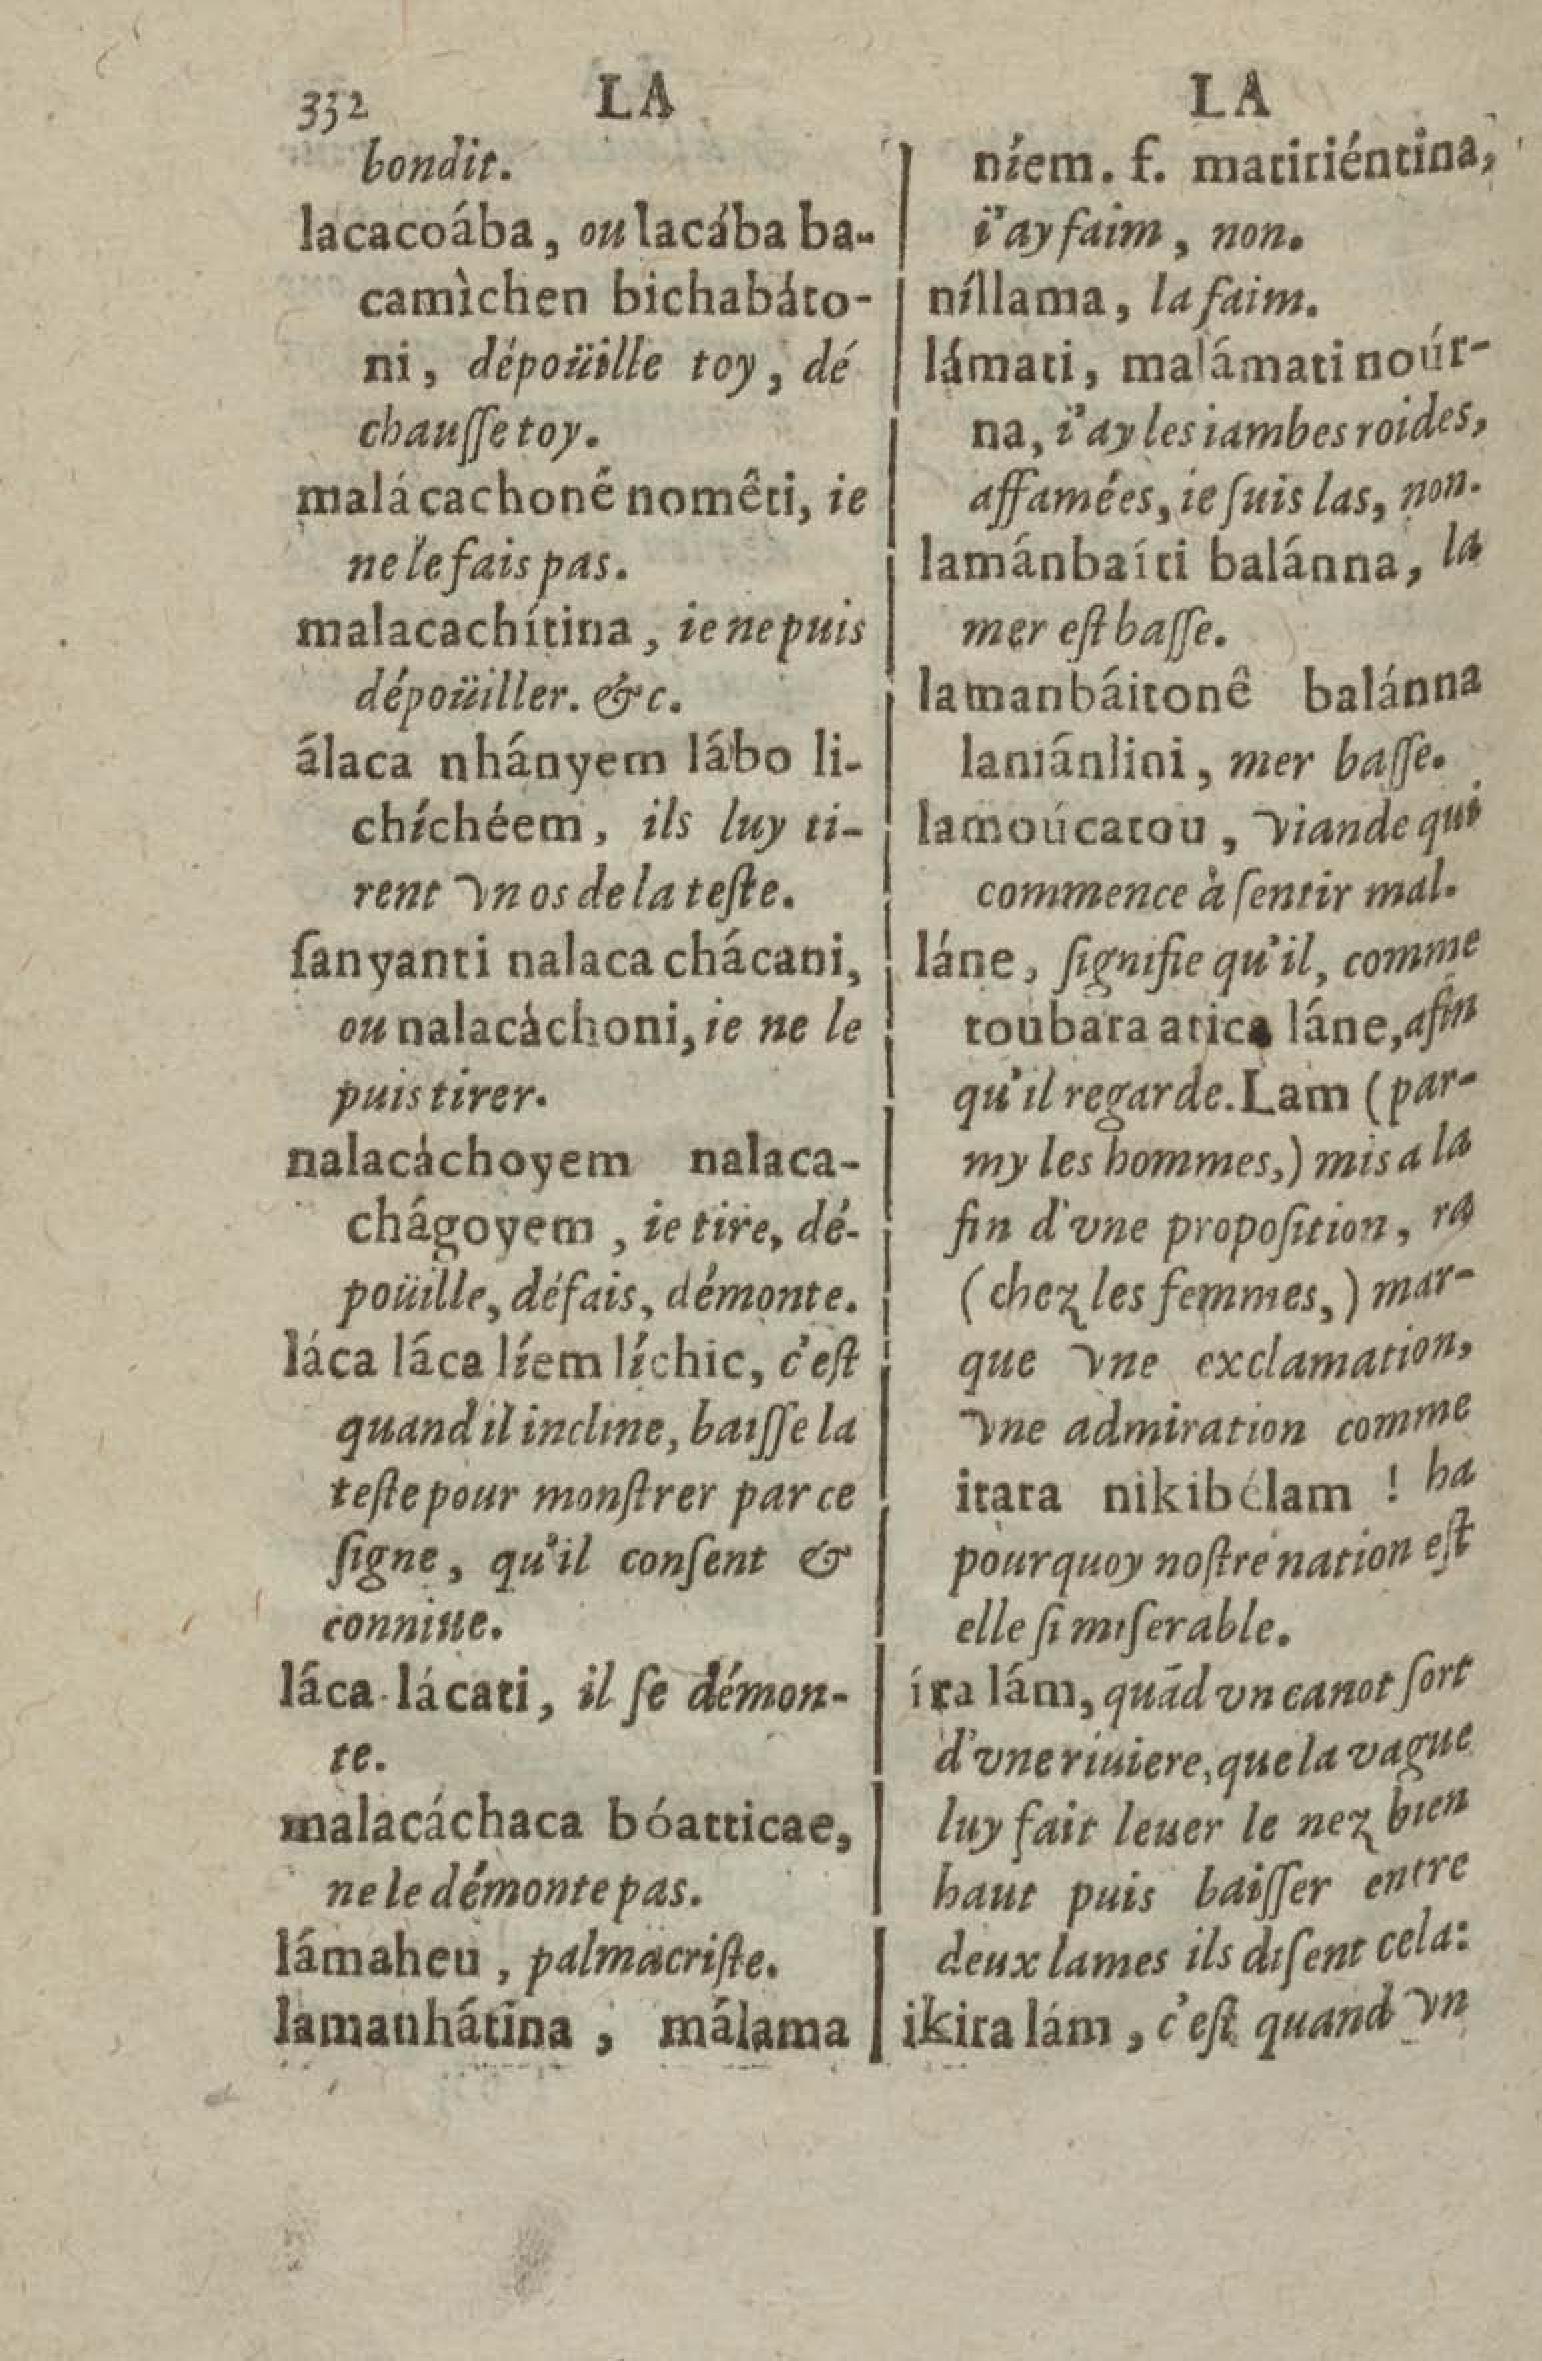 332 LA LA
bondit.
lacacoába, ou lacába ba-
camìchen bichabáto-
ni, dépoüille toy, dé
chauſſe toy.
malácachoné nomêti, ie
ne le fais pas.
malacachítina, ie ne puis
dépoüiller. &c.
álaca nhányem lábo li-
chíchéem, ils luy ti-
rent vn os de la teſte.
ſanyanti nalaca chácani,
ou nalacáchoni, ie ne le
puis tirer.
nalacáchoyem nalaca-
chágoyem, ie tire, dé-
poüille, défais, démonte.
láca láca líem líchic, c'eſt
quand il incline, baiſſe la
teſte pour monſtrer par ce
ſigne, qu'il conſent &
conniue.
láca-lácati, il ſe démon-
te.
malacáchaca bóatticae,
ne le démonte pas.
lámaheu, palmacriſte.
lamanhátina, málama
níem. f. matitiéntina,
i'ay faim, non.
níllama, la faim.
lámati, malámati noúr-
na, i'ay les iambes roides,
affamées, ie ſuis las, non.
lamánbaíti balánna, la
mer eſt baſſe.
lamanbáitonê balánna
laniánlini, mer baſſe.
lamoúcatou, viande qui
commence à ſentir mal.
láne, ſignifie qu'il, comme
toubara atica láne, afin
qu'il regarde. Lam (par-
my les hommes,) mis a la
fin d'vne propoſition, ra
(chez les femmes,) mar-
que vne exclamation,
vne admiration comme
itara nikibélam ! ha
pourquoy noſtre nation eſt
elle ſi miſerable.
íra lám, quãd vn canot ſort
d'vne riuiere, que la vague
luy fait leuer le nez bien
haut puis baiſſer entre
deux lames ils diſent cela:
ikira lám, c'eſt quand vn